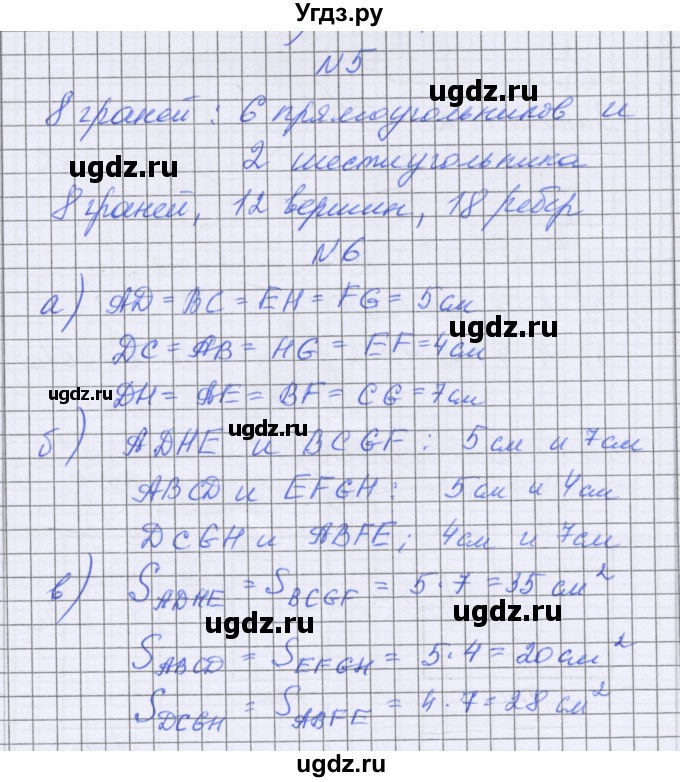 Угдз.ру
N5
8 граней: 6 прямоугольников и
ugdz.ru
2 шестиугольника
ugdz.ru
8 граней, 12 вершин, 18 ребер
N6
а) AD = BC = EH = FG = 5 см
ugdz.ru
DC = AB = HG = EF = 4 см
ugdz.ru
DH = AE = BF = CG = 7 см
ugdz.ru
б) ADHE и BCGF: 5 см и 7 см
ABCD и EFGH: 5 см и 4 см
DCGH и ABFE; 4 см и 7 см
в) S ADHE = S BCGF = 5·7 = 35 см²
ugdz.ru
S ABCD = S EFGH = 5·4 = 20 см²
S DCGH = S ABFE = 4·7 = 28 см²
ugdz.ru